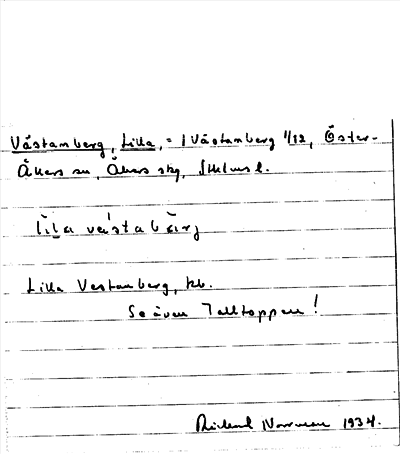 Västamberg, Lilla, = 1 Västamberg 1/12, Öster-
Åkers sn, Åkers skg, Sthlms l.
lila västabärj
Lilla Vestamberg, kb.
Se även Talltoppen!
Rickard Norrman 1934.